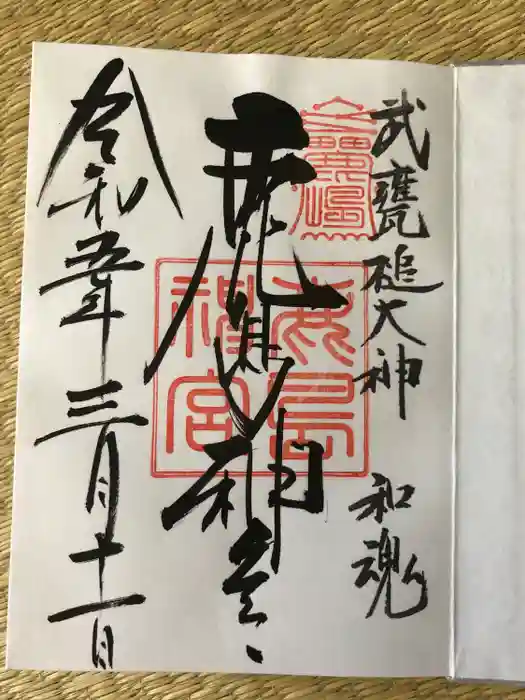 武甕槌大神 和魂
鹿島神宮
令和五年三月十一日
鹿島
神宮